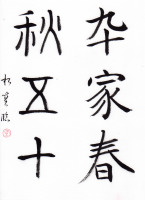 卆家春
秋五十